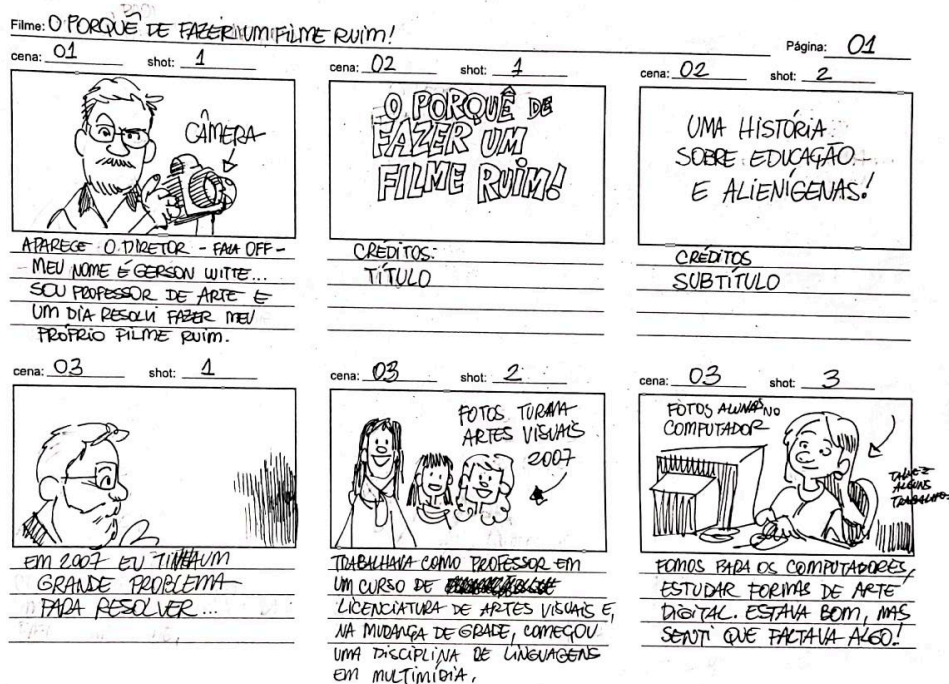 Filme: O PORQUÊ DE FAZER UM FILME RUIM!
Página: 01
cena: 01 shot: 1
CÂMERA
APARECE O DIRETOR - FALA OFF -
MEU NOME É GERSON WITTE...
SOU PROFESSOR DE ARTE E
UM DIA RESOLVI FAZER MEU
PRÓPRIO FILME RUIM.
cena: 02 shot: 1
O PORQUÊ DE
FAZER UM
FILME RUIM!
CRÉDITOS:
TÍTULO
cena: 02 shot: 2
UMA HISTÓRIA
SOBRE EDUCAÇÃO
E ALIENÍGENAS!
CRÉDITOS
SUBTÍTULO
cena: 03 shot: 1
EM 2007 EU TINHA UM
GRANDE PROBLEMA
PARA RESOLVER...
cena: 03 shot: 2
FOTOS TURMA
ARTES VISUAIS
2007
TRABALHAVA COMO PROFESSOR EM
UM CURSO DE
LICENCIATURA DE ARTES VISUAIS E,
NA MUDANÇA DE GRADE, COMEÇOU
UMA DISCIPLINA DE LINGUAGENS
EM MULTIMÍDIA.
cena: 03 shot: 3
FOTOS ALUNAS NO
COMPUTADOR
TALVEZ
ALGUNS
TRABALHOS.
FOMOS PARA OS COMPUTADORES,
ESTUDAR FORMAS DE ARTE
DIGITAL. ESTAVA BOM, MAS
SENTI QUE FALTAVA ALGO!